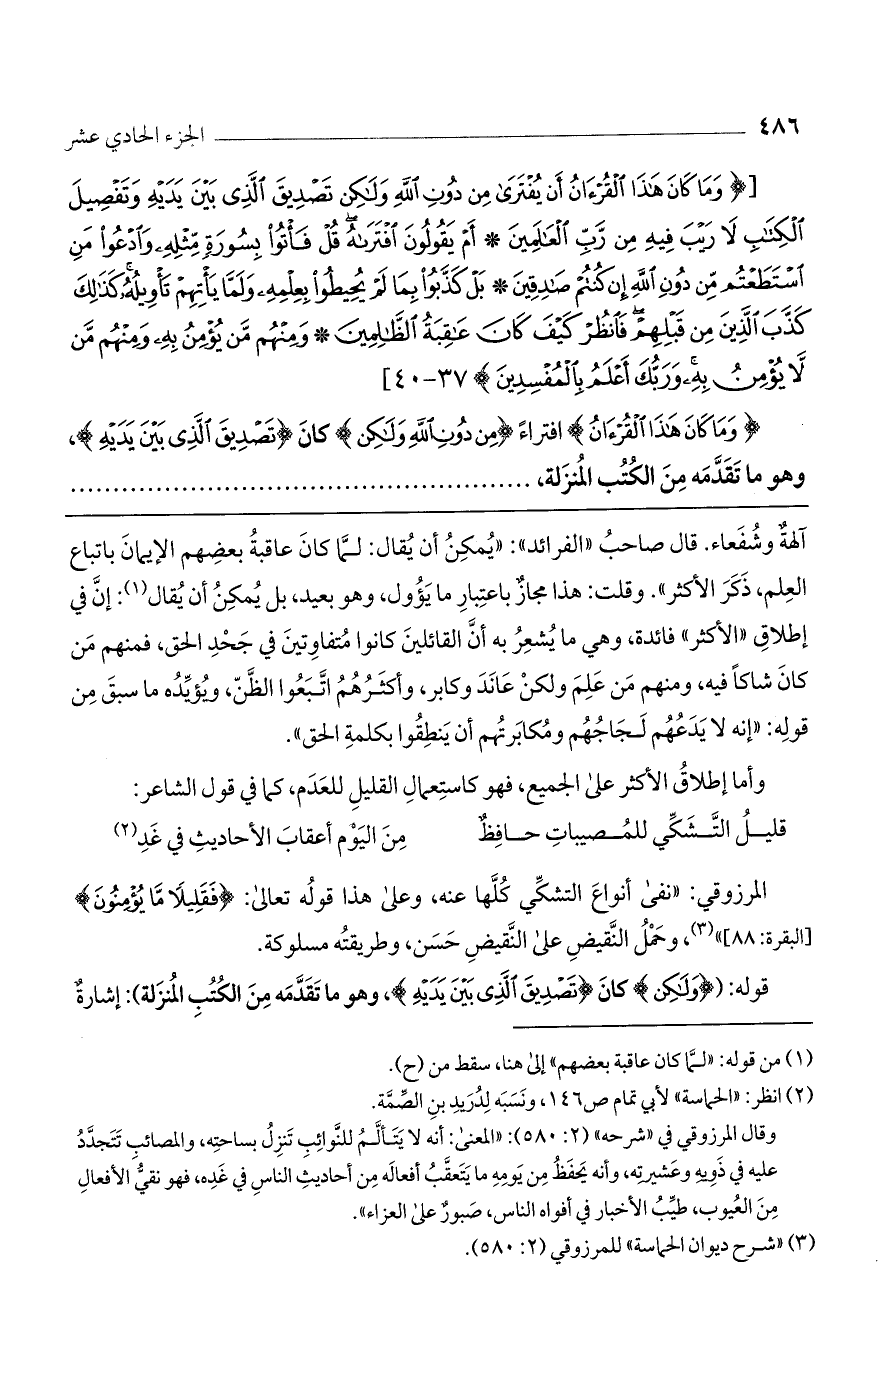 ٤٨٦ ــــــــــــــــــــــــــــــــــــــــ الجزء الحادي عشر
[﴿ وَمَا كَانَ هَٰذَا ٱلْقُرْءَانُ أَن يُفْتَرَىٰ مِن دُونِ ٱللَّهِ وَلَٰكِن تَصْدِيقَ ٱلَّذِى بَيْنَ يَدَيْهِ وَتَفْصِيلَ
ٱلْكِتَٰبِ لَا رَيْبَ فِيهِ مِن رَّبِّ ٱلْعَٰلَمِينَ * أَمْ يَقُولُونَ ٱفْتَرَىٰهُ ۖ قُلْ فَأْتُوا۟ بِسُورَةٍ مِّثْلِهِۦ وَٱدْعُوا۟ مَنِ
ٱسْتَطَعْتُم مِّن دُونِ ٱللَّهِ إِن كُنتُمْ صَٰدِقِينَ * بَلْ كَذَّبُوا۟ بِمَا لَمْ يُحِيطُوا۟ بِعِلْمِهِۦ وَلَمَّا يَأْتِهِمْ تَأْوِيلُهُۥ ۚ كَذَٰلِكَ
كَذَّبَ ٱلَّذِينَ مِن قَبْلِهِمْ ۖ فَٱنظُرْ كَيْفَ كَانَ عَٰقِبَةُ ٱلظَّٰلِمِينَ * وَمِنْهُم مَّن يُؤْمِنُ بِهِۦ وَمِنْهُم مَّن
لَّا يُؤْمِنُ بِهِۦ ۚ وَرَبُّكَ أَعْلَمُ بِٱلْمُفْسِدِينَ ﴾ ٣٧-٤٠]
﴿ وَمَا كَانَ هَٰذَا ٱلْقُرْءَانُ ﴾ افتراءً ﴿مِن دُونِ ٱللَّهِ وَلَٰكِن ﴾ كانَ ﴿تَصْدِيقَ ٱلَّذِى بَيْنَ يَدَيْهِ ﴾،
وهو ما تَقَدَّمَه مِنَ الكتُب المُنزَلة، ......................................................
آلهةٌ وشُفَعاء. قال صاحبُ «الفرائد»: «يُمكِنُ أن يُقال: لـمَّا كانَ عاقبةُ بعضِهم الإيمانَ باتباع
العِلم، ذَكَرَ الأكثر». وقلت: هذا مجازٌ باعتِبارِ ما يَؤُول، وهو بعيد، بل يُمكِنُ أن يُقال(١): إنَّ في
إطلاقِ «الأكثر» فائدة، وهي ما يُشعِرُ به أنَّ القائلينَ كانوا مُتفاوِتينَ في جَحْدِ الحق، فمنهم مَن
كانَ شاكاً فيه، ومنهم مَن عَلِمَ ولكنْ عَانَدَ وكابر، وأكثَـرُهُمُ اتَّـبَعُوا الظَّنّ، ويُؤيِّدُه ما سبقَ مِن
قولِه: «إنه لا يَدَعُهُم لَـجَاجُهُم ومُكابَرتُهم أن يَنطِقُوا بكلمةِ الحق».
وأما إطلاقُ الأكثر علىٰ الجميع، فهو كاستِعمالِ القليلِ للعَدَم، كما في قول الشاعر:
قليـلُ التَّـشَكِّي للمُـصيباتِ حـافِظٌ    مِنَ اليَوْمِ أعقابَ الأحاديثِ في غَدِ(٢)
المرزوقي: «نفىٰ أنواعَ التشكِّي كُلَّها عنه، وعلىٰ هذا قولُه تعالىٰ: ﴿فَقَلِيلًا مَّا يُؤْمِنُونَ﴾
[البقرة: ٨٨]»(٣)، وحَمْلُ النَّقيضِ علىٰ النَّقيضِ حَسَن، وطريقتُه مسلوكة.
قوله: (﴿وَلَٰكِن ﴾ كانَ ﴿تَصْدِيقَ ٱلَّذِى بَيْنَ يَدَيْهِ ﴾، وهو ما تَقَدَّمَه مِنَ الكتُبِ المُنزَلة): إشارةٌ
(١) من قوله: «لـمَّا كان عاقبة بعضهم» إلىٰ هنا، سقط من (ح).
(٢) انظر: «الحماسة» لأبي تمام ص١٤٦، ونَسَبَه لِدُرَيدِ بنِ الصِّمَّة.
وقال المرزوقي في «شرحه» (٢: ٥٨٠): «المعنىٰ: أنه لا يَتَـألَّـمُ للنَّوائِبِ تَنزِلُ بساحتِه، والمصائبِ تَتَجدَّدُ
عليه في ذَوِيهِ وعَشيرتِه، وأنه يَحفَظُ مِن يَومِهِ ما يَتَعقَّبُ أفعالَه مِن أحاديثِ الناسِ في غَدِه، فهو نقيُّ الأفعالِ
مِنَ العُيوب، طيِّبُ الأخبار في أفواه الناس، صَبورٌ علىٰ العزاء».
(٣) «شـرح ديوان الحماسة» للمرزوقي (٢: ٥٨٠).